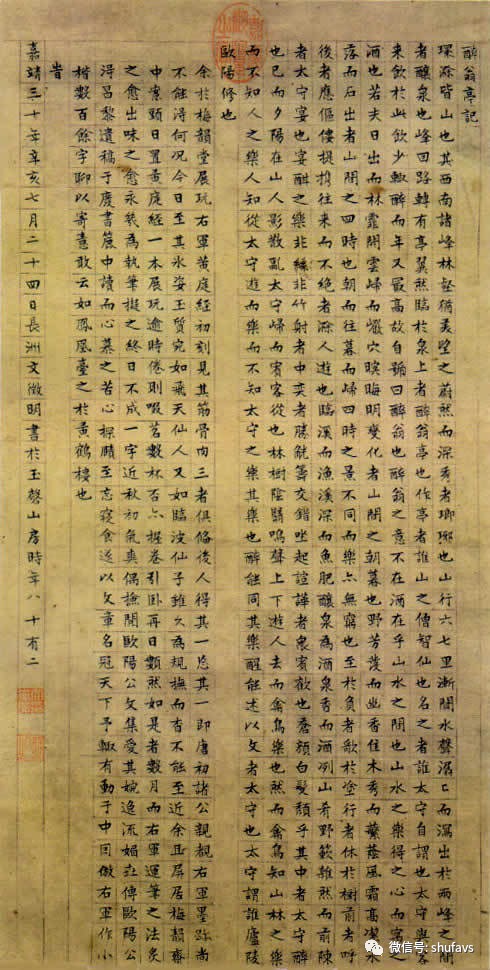 醉翁亭記
環滁皆山也其西南諸峰林壑猶美望之蔚然而深秀者瑯琊也山行六七里漸聞水聲潺〻而瀉出於兩峰之間
者釀泉也峰回路轉有亭翼然臨於泉上者醉翁亭也作亭者誰山之僧智仙也名之者誰太守自謂也太守與客
來飲於此飲少輒醉而年又最高故自號曰醉翁也醉翁之意不在酒在乎山水之間也山水之樂得之心而寓之
酒也若夫日出而林霏開雲歸而巖穴暝晦明變化者山間之朝暮也野芳發而幽香佳木秀而蘩蔭風霜高潔水
落而石出者山間之四時也朝而往暮而歸四時之景不同而樂亦無窮也至於負者歌於塗行者休於樹前者呼
後者應傴僂提攜往來而不絕者滁人遊也臨溪而漁溪深而魚肥釀泉為酒泉香而酒冽山肴野蔌雜然而前陳
者太守宴也宴酣之樂非絲非竹射者中奕者勝觥籌交錯坐起諠譁者眾賓歡也蒼顏白髮頹乎其中者太守醉
也已而夕陽在山人影散亂太守歸而賓客從也林樹陰翳鳴聲上下遊人去而禽鳥樂也然而禽鳥知山林之樂
而不知人之樂人知從太守遊而樂而不知太守之樂其樂也醉能同其樂醒能述以文者太守也太守謂誰廬陵
歐陽修也
余於梅韻堂展玩右軍黃庭經初刻見其筋骨肉三者俱備後人得其一忘其一即唐初諸公親覩右軍墨跡尚
不能淂何況今日至其氷姿玉質宛如飛天仙人又如臨波仙子雖久為規撫而杳不能至近余且屏居梅韻齋
中案頭日置黃庭經一本展玩逾時倦則啜茗數杯否亦握卷引臥再日數然如是者數月而右軍運筆之法炙
之愈出味之愈永為執筆擬之終日不成一字近秋初氣爽偶撫閱歐陽公文集愛其婉逸流媚世傳歐陽公
淂呂黎遺稿于廢書簏中讀而心慕之苦心探賾至忘寢食遂以文章名冠天下予輒有動于中因倣右軍作小
楷數百余字聊以寄意敢云如鳳凰臺之於黃鶴樓也
旹
嘉靖三十年辛亥七月二十四日長洲文徵明書於玉磬山房時年八十有二
微信号: shufavs